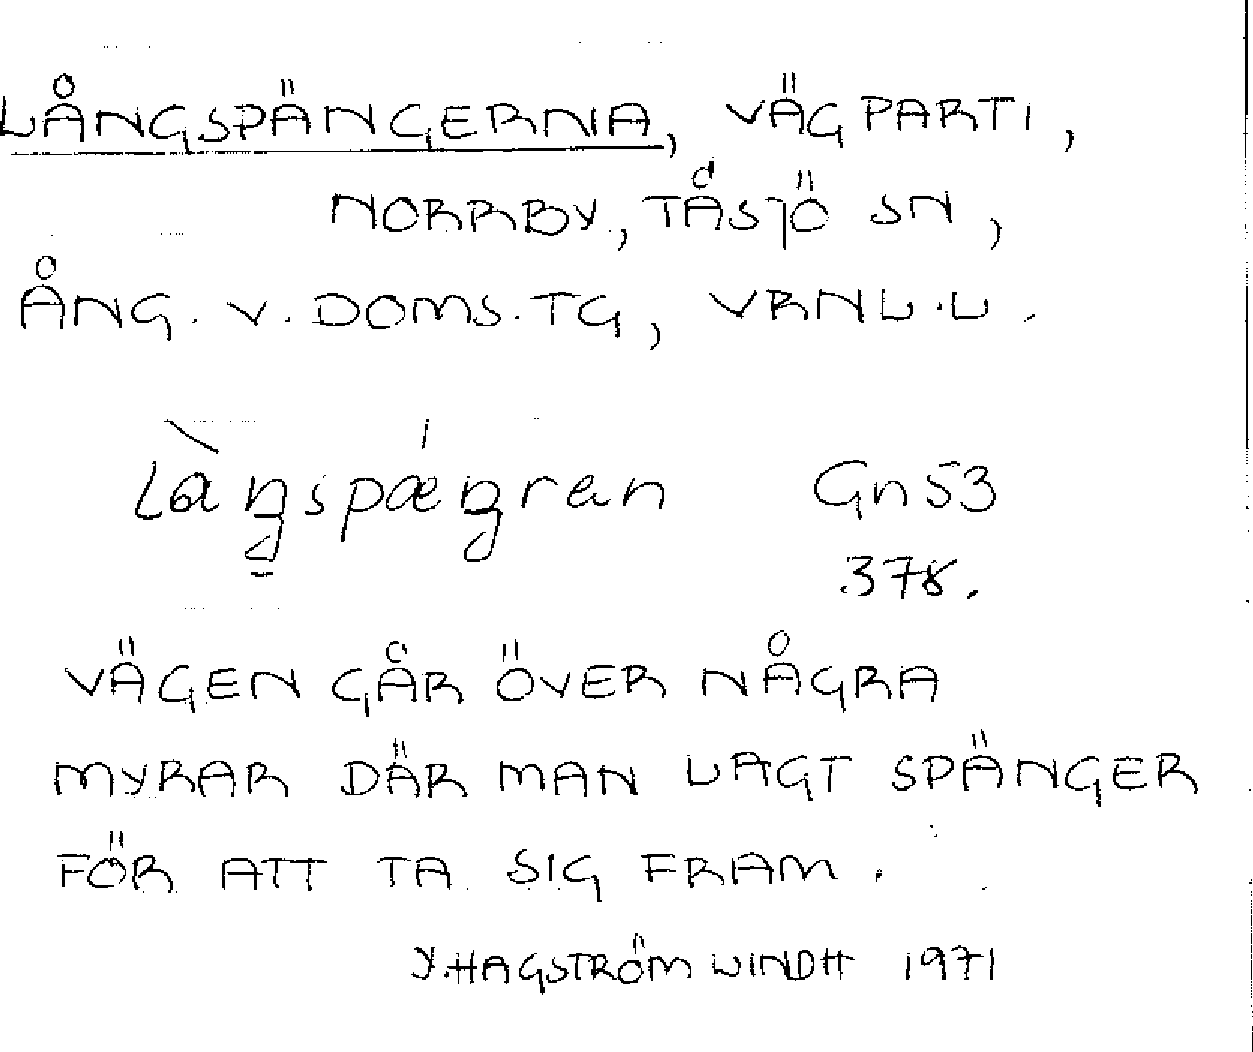 LÅNGSPÄNGERNA, VÄGPARTI,
NORRBY, TÅSJÖ SN,
ÅNG. V. DOMS. TG, VRNL. L.
Làŋspæŋran Gn 53
378.
VÄGEN GÅR ÖVER NÅGRA
MYRAR DÄR MAN LAGT SPÄNGER
FÖR ATT TA SIG FRAM.
Y. HAGSTRÖM WINDH 1971